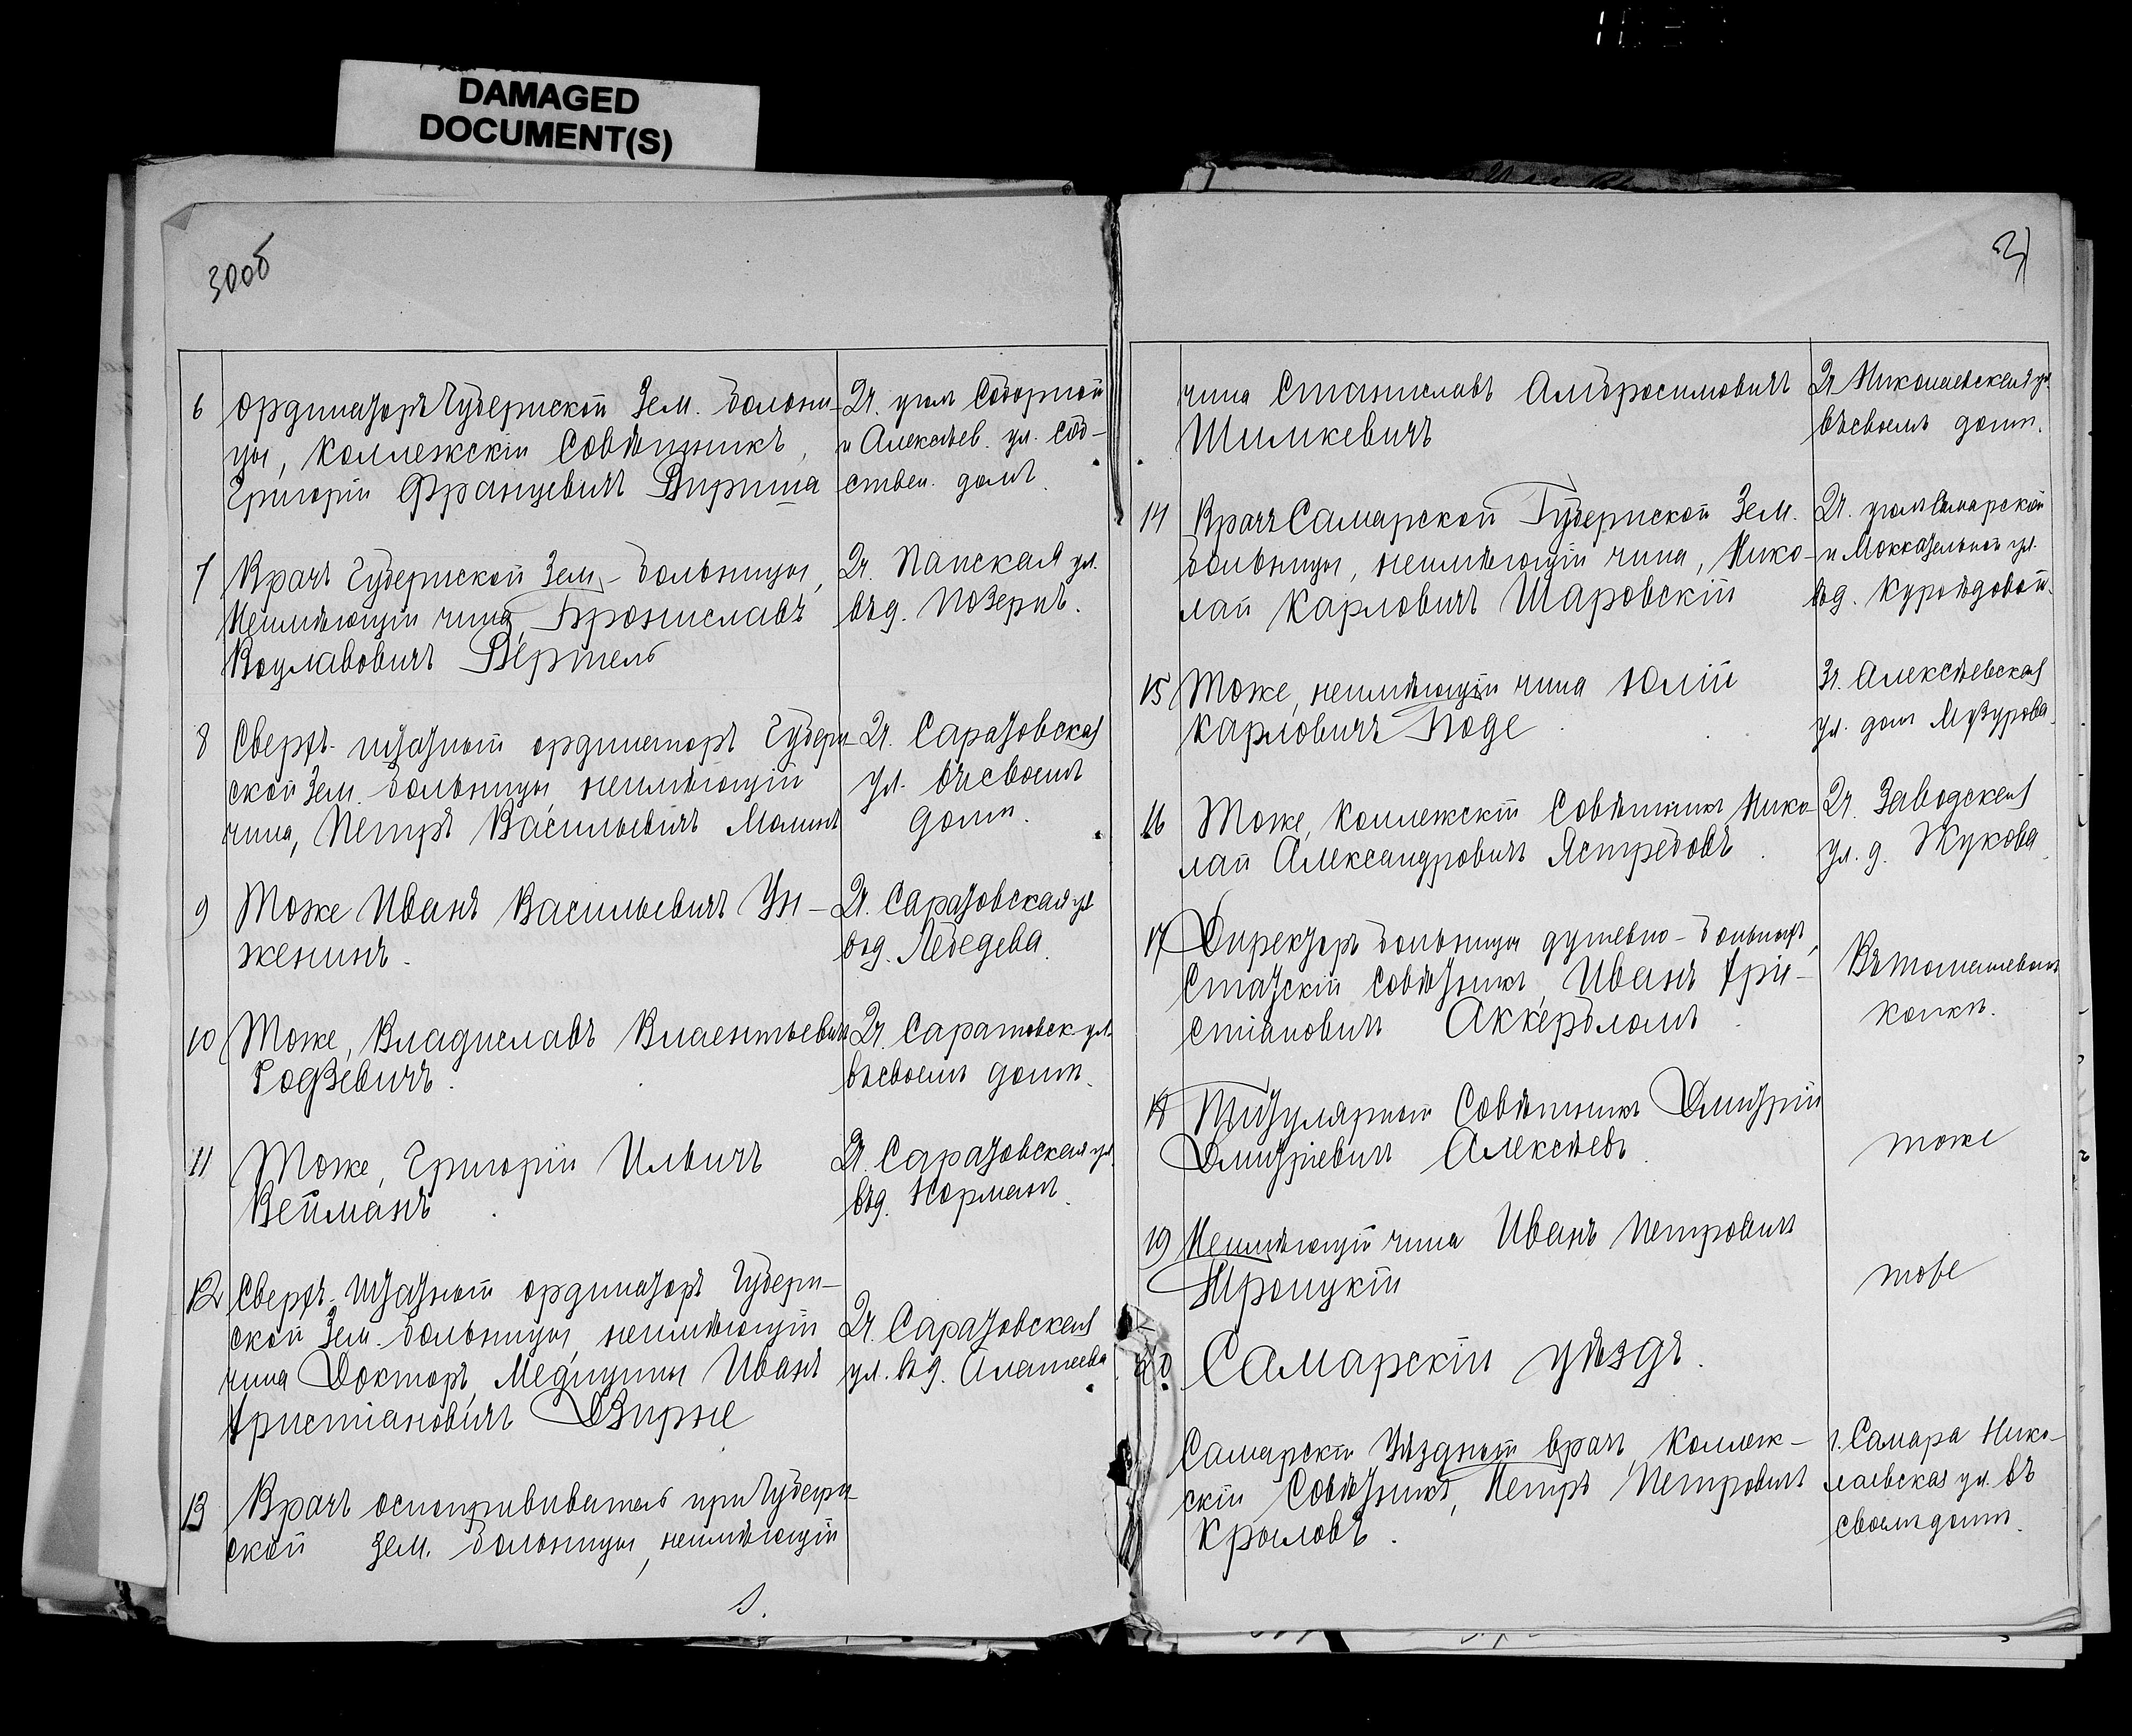 DAMAGED
DOCUMENT(S)
30об
6 ординаторъ Губернской Зем. больни-
цы, Коллежскій Совѣтникъ,
Григорій Францевичъ Вирпша
2ч. уголъ Соборной
и Алексѣев. ул. соб-
ствен. домъ.
7 Врачъ Губернской Зем. больницы,
Неимѣющій чина, Брониславъ
Воцлавовичъ Вертель
2ч. Панская ул.
въ д. Позернъ.
8 Сверхъ-штатный ординаторъ Губерн-
ской Зем. больницы неимѣющій
чина, Петръ Васильевичъ Молинъ
2ч. Саратовская
ул. въ своемъ
домѣ.
9 Тоже Иванъ Васильевичъ Ун-
женинъ.
2ч. Саратовская ул
въ д. Лебедева.
10 Тоже, Владиславъ Викентьевичъ
Родзевичъ.
2ч. Саратовск. ул.
въ своемъ домѣ.
11 Тоже, Григорій Ильичъ
Вейманъ
2ч. Саратовская ул.
въ д. Юрманъ.
12 Сверхъ-штатный ординаторъ Губерн-
ской Зем. больницы, неимѣющій
чина Докторъ Медицины Иванъ
Христіановичъ Двирне
2ч. Саратовская
ул. въ д. Алашеева
13 Врачъ оспопрививатель при Губерн-
ской зем. больницы, неимѣющій
31
чина Станиславъ Амбросимовичъ
Шимкевичъ
2ч Николаевская ул.
въ своемъ домѣ.
14 Врачъ Самарской Губернской Зем.
больницы, неимѣющій чина, Нико-
лай Карловичъ Шаровскій
2ч. уголъ Самарской
и Москательной ул.
въ д. Куроѣдовой.
15 Тоже, неимѣющій чина Юлій
Карловичъ Боде
3ч. Алексѣевская
ул. домъ Мязурова.
16 Тоже, Коллежскій Совѣтникъ Нико-
лай Александровичъ Ястребовъ
2ч. Заводская
ул. д. Жукова.
17 Директоръ больницы душевно-больныхъ,
Статскій Совѣтникъ, Иванъ Хри-
стіановичъ Аккербломъ
Въ Томашевомъ
колкѣ.
18 Титулярный Совѣтникъ Дмитрій
Дмитріевичъ Алексѣевъ
тоже
19 Неимѣющій чина Иванъ Петровичъ
Троицкій
тоже
20 Самарскій уѣздъ.
Самарскій Уѣздный врачъ, Коллеж-
скій Совѣтникъ, Петръ Петровичъ
Крыловъ.
г. Самара Нико-
лаевская ул. въ
своемъ домѣ.